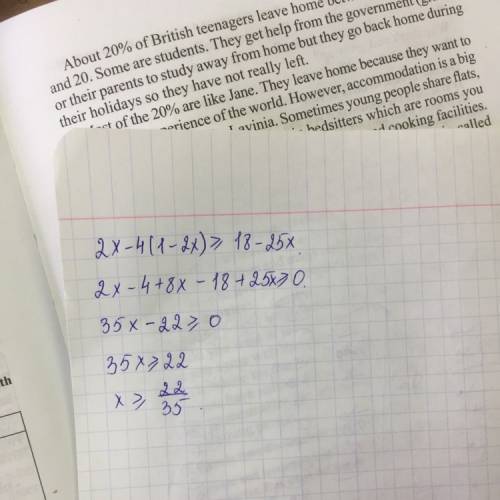 About 20% of British teenagers leave home
and 20. Some are students. They get help from the government
or their parents to study away from home but they go back home during
their holidays so they have not really left.
of the 20% are like Jane. They leave home because they want to
of the world. However, accommodation is a big
Lavinia. Sometimes young people share flats,
bedsitters which are rooms you
cooking facilities.
called
2x-4(1-2x)≥18-25x
2x-4+8x-18+25x≥0.
35x-22≥0
35x≥22
x≥22/35.